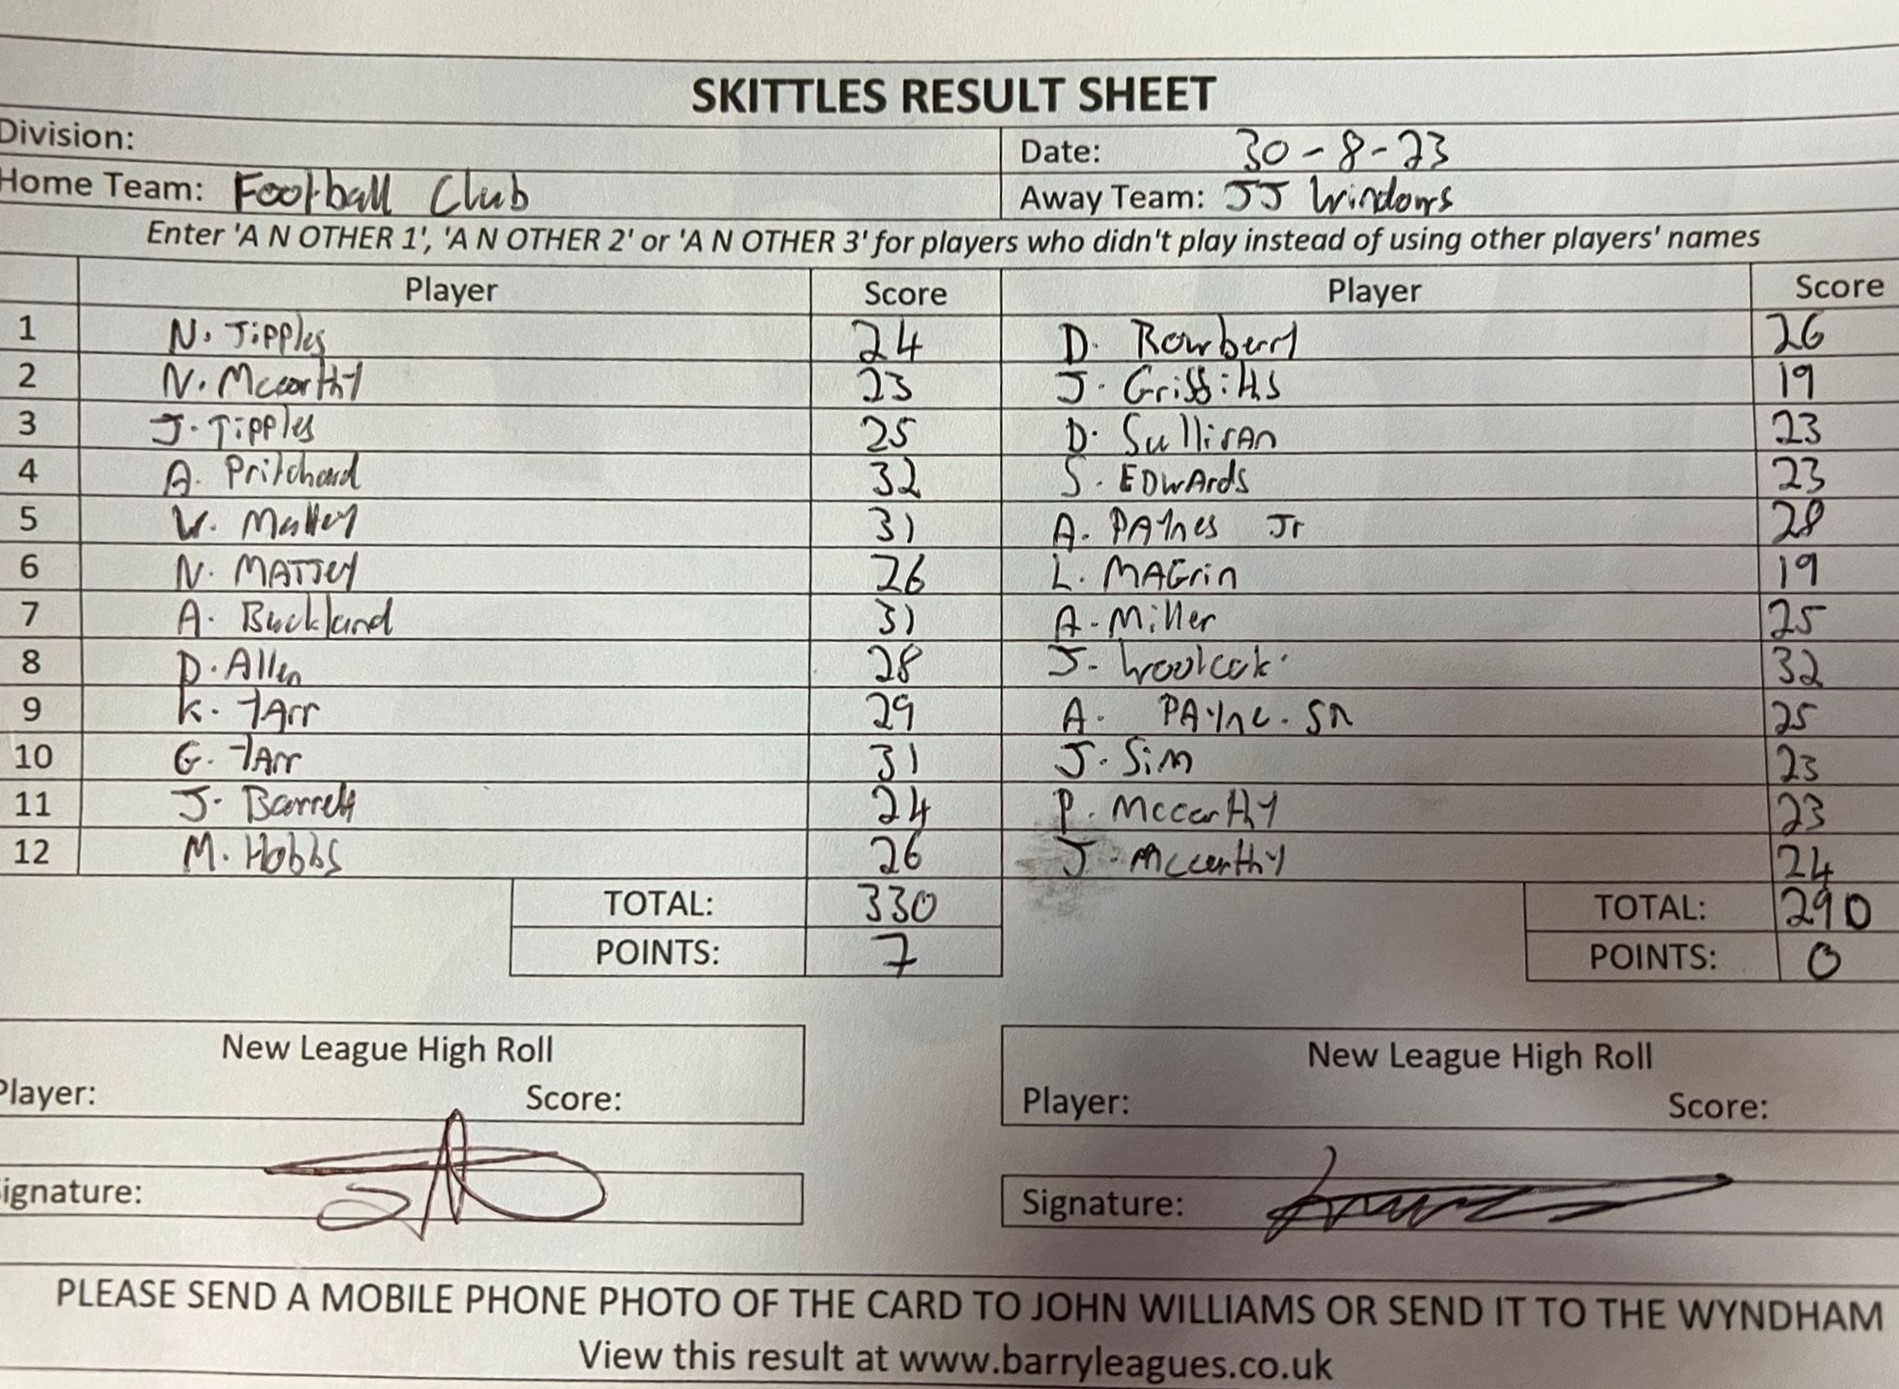 SKITTLES RESULT SHEET
Division: Date: 30-8-23
Home Team: Football Club Away Team: JJ Windows
Enter 'A N OTHER 1', 'A N OTHER 2' or 'A N OTHER 3' for players who didn't play instead of using other players' names
Player Score Player Score
1 N. Tipples 24 D. Rowberry 26
2 N. Mccarthy 23 J. Griffiths 19
3 J. Tipples 25 D. Sullivan 23
4 A. Pritchard 32 S. EDwArds 23
5 W. Mattey 31 A. PAYnes Jr 28
6 N. MATTEY 26 L. MAGrin 19
7 A. Buckland 31 A. Miller 25
8 D. Allen 28 J. Woolcok 32
9 K. TArr 29 A. PAYne. SR 25
10 G. TArr 31 J. Sim 23
11 J. Barrett 24 P. Mccarthy 23
12 M. Hobbs 26 J. Mccarthy 24
TOTAL: 330 TOTAL: 290
POINTS: 7 POINTS: 0
New League High Roll New League High Roll
Player: Score: Player: Score:
Signature: Signature:
PLEASE SEND A MOBILE PHONE PHOTO OF THE CARD TO JOHN WILLIAMS OR SEND IT TO THE WYNDHAM
View this result at www.barryleagues.co.uk